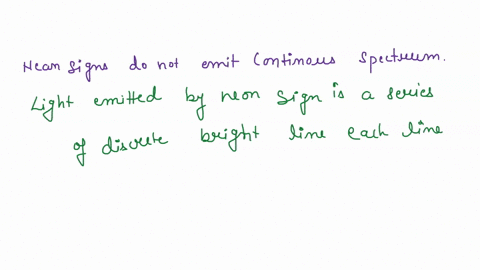 Neon signs do not emit Continous Spectrum.
Light emitted by neon sign is a series
of discrete bright line each line